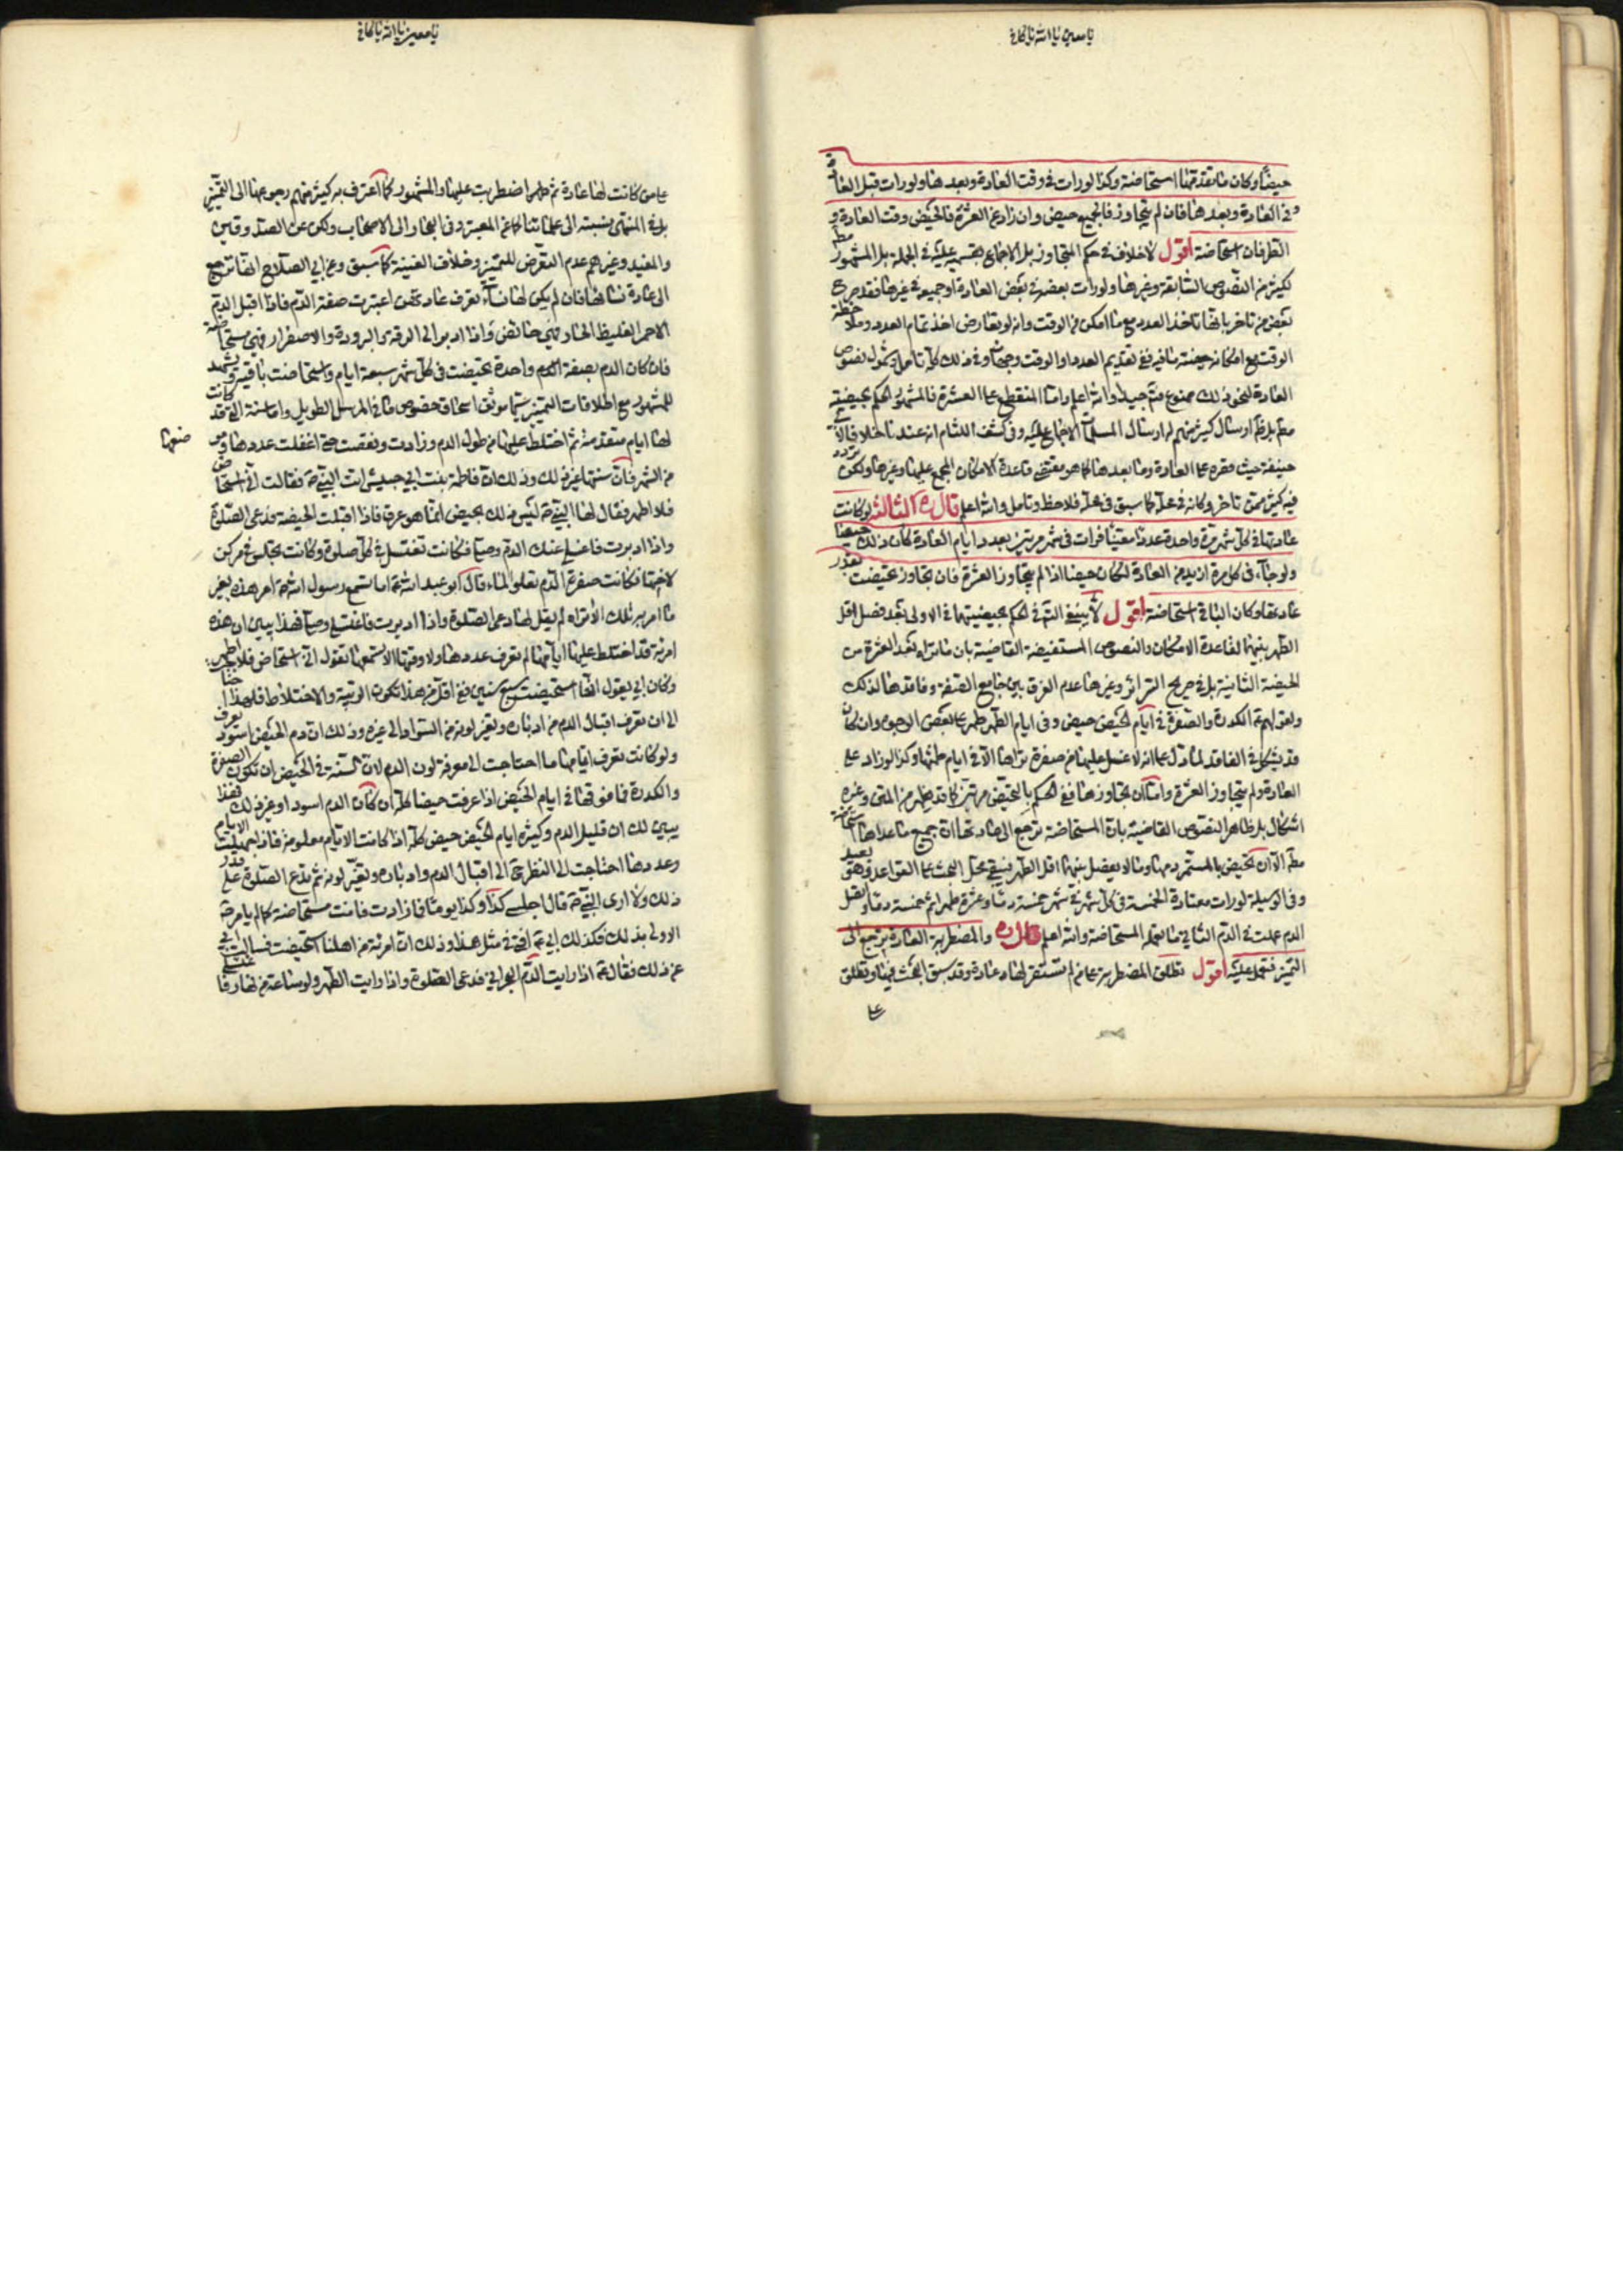 يا معين يا الله يا كافي
حيضا وكان ما تقدمها استحاضة وكذا لو رات في وقت العادة وبعدها ولو رات قبل العادة
وفي العادة وبعدها فان لم يتجاوز فالجميع حيض وان زاد عن العشرة فالحيض وقت العادة و
الطرفان استحاضة اقول لا خلاف في حكم المتجاوز بل الاجماع بقسميه عليه في الجملة بل المشهور مط
لكثير من النصوص السابقة وغيرها ولو رات بعضه في بعض العادة او جميعه في غيرها فقد صرح
بعض من تاخر بانها تاخذ العدد مع ما امكن من الوقت وانه لو تعارض اخذ تمام العدد وملاحظة
الوقت مع امكانه حيضية منافيه ففي تقديم العدد او الوقت وجهان وفي ذلك كله تامل وشمول نصوص
العادة لنحو ذلك ممنوع فتم جيدا والله اعلم واما المنقطع على العشرة فالمشهور الحكم بحيضيته
مطم بل ظ ارسال كثير منهم له ارسال المسلمات الاجماع عليه وفي كشف اللثام انه عندنا خلافا لابي
حنيفة حيث قصره على العادة وما بعدها كما هو مقتضى قاعدة الامكان المجمع عليها وغيرها ولكن تردد
فيه كثير ممن تاخر وكانه في محله كما سبق في محله فلاحظ وتامل والله اعلم قال ره الثالثة لو كانت
عادتها في كل شهر مرة واحدة عددا معينا فرات في شهر مرتين بعدد ايام العادة كان ذلك حيضا
ولو جاء في كل مرة ازيد من العادة لكان حيضا اذا لم يتجاوز العشرة فان تجاوز تحيضت بقدر
عادتها وكان الباقي استحاضة اقول لا ينبغي التام في الحكم بحيضيتهما في الاولى بعد فصل اقل
الطهر بينهما لقاعدة الامكان والنصوص المستفيضة القاضية بان ما تراه بعد العشرة من
الحيضة الثانية بل في صريح السرائر وغيرها عدم الفرق بين جامع الصفة وفاقدها لذلك
ولقولهم ع الكدرة والصفرة في ايام الحيض حيض وفي ايام الطهر طهر على بعض الوجوه وان كان
قد يشكل في الفاقد لما دل على انه لا غسل عليها من صفرة تراها الا في ايام طمثها وكذا لو زاد على
العادة ولم يتجاوز العشرة واما ان تجاوزها ففي الحكم بالتحيض مرتين كما قد يظهر من المتن وغيره
اشكال بل ظاهر النصوص القاضية بان المستحاضة ترجع الى عادتها ان جميع ما عداها استحاضة
مطم الا ان تخصيص بالمستمر دمها وما لا يفصل بينهما اقل الطهر فيبقى محل البحث على القواعد وهو بعيد
وفي الوسيلة لو رات معتادة الخمسة في كل شهر في شهر خمسة دما وعشرة طهرا ثم خمسة دما وانقل
الدم عملت في الدم الثاني ما تعمله المستحاضة والله اعلم قال ره والمضطربة العادة ترجع الى
التميز فتعمل عليه اقول تطلق المضطربة على من لم تستقر لها عادة وقد سبق البحث فيها وتطلق
على
يا معين يا الله يا كافي
على من كانت لها عادة ثم طرا اضطربت عليها والمشهور كما اعترف به كثير منهم رجوعها الى التميز
بل في المنتهى نسبته الى علمائنا كما عن المعتبر وفي البحار الى الاصحاب ولكن عن الصدوقين
والمفيد وغيرهم عدم التعرض للتميز وخلاف الغنية كما سبق وعن ابي الصلاح انها ترجع
الى عادة نسائها فان لم يكن لها نساء تعرف عادتهن اعتبرت صفة الدم فاذا اقبل الدم
الاحمر الغليظ الحار فهي حائض واذا ادبر الى الرقة والبرودة والاصفرار فهي مستحاضة
فان كان الدم بصفة الدم واحدة تحيضت في كل شهر سبعة ايام واستحاضت باقيه ويشهد
للمشهور مع اطلاقات التميز سيما موثق اسحاق خصوص ما في المرسل الطويل واما سنة التي قد كانت
لها ايام متقدمة ثم اختلط عليها من طول الدم وزادت ونقصت حتى اغفلت عددها وموضعها
من الشهر فان سنتها غير ذلك وذلك ان فاطمة بنت ابي حبيش اتت النبي ص فقالت اني استحاض
فلا اطهر فقال لها النبي ص ليس ذلك بحيض انما هو عرق فاذا اقبلت الحيضة فدعي الصلوة
واذا ادبرت فاغسلي عنك الدم وصلي فكانت تغتسل في كل صلوة وكانت تجلس في مركن
لاختها فكانت صفرة الدم تعلو الماء قال ابو عبد الله ع اما تسمع رسول الله ص امر هذه بغير
ما امر به تلك الا تراه لم يقل لها دعي الصلوة واذا ادبرت فاغتسلي وصلي فهذا يبين ان هذه
امرئة قد اختلط عليها ايامها لم تعرف عددها ولا وقتها الا تسمعها تقول اني استحاض فلا اطهر
وكان ابي يقول انها استحيضت سبع سنين ففي اقل من هذا تكون الريبة والاختلاط فلهذا احتاجت
الى ان تعرف اقبال الدم من ادباره وتغير لونه من السواد الى غيره وذلك ان دم الحيض اسود يعرف
ولو كانت تعرف ايامها ما احتاجت الى معرفة لون الدم لان السنة في الحيض ان تكون الصفرة
والكدرة فما فوقها في ايام الحيض اذا عرفت حيضا كله ان كان الدم اسود او غير ذلك فهذا
يبين لك ان قليل الدم وكثيره ايام الحيض حيض كله اذا كانت الايام معلومة فاذا جهلت الايام
وعددها احتاجت الى النظر ح الى اقبال الدم وادباره وتغير لونه ثم تدع الصلوة على قدر
ذلك ولا ارى النبي ص قال اجلسي كذا وكذا يوما فما زادت فانت مستحاضة كما لم يامر ص
الاولى بذلك وكذلك ابي ع افتى في مثل هذا وذلك ان امرئة من اهلنا استحيضت فسالت ابي
عن ذلك فقال ع اذا رايت الدم البحراني فدعي الصلوة واذا رايت الطهر ولو ساعة من نهار فاغتسلي